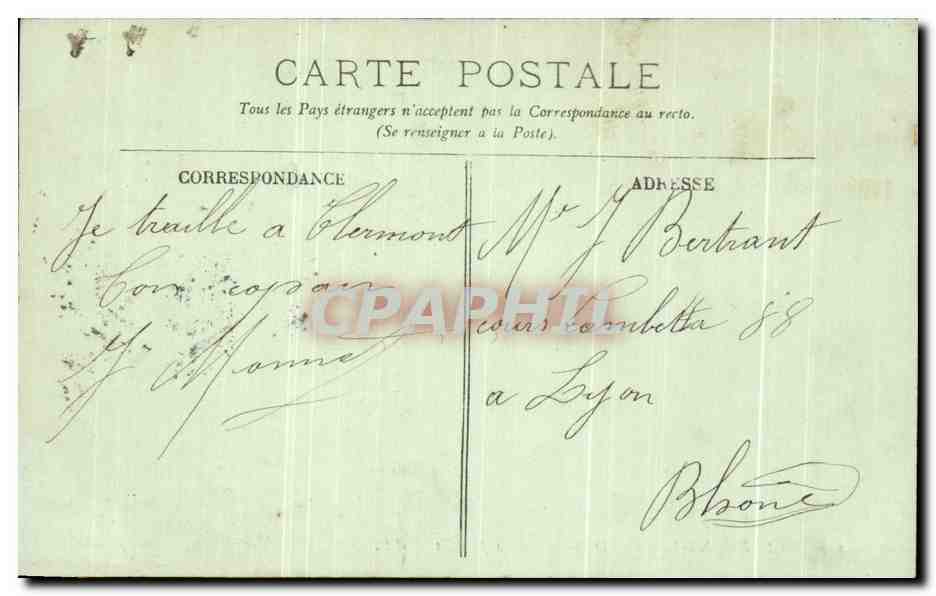 CARTE POSTALE
Tous les Pays étrangers n'acceptent pas la Correspondance au recto.
(Se renseigner a la Poste).
CORRESPONDANCE
Je traille a Clermont
Ton copain
J Monnet
ADRESSE
Mr J Bertrant
cours Gambetta 88
a Lyon
Rhone
CPAPHIL